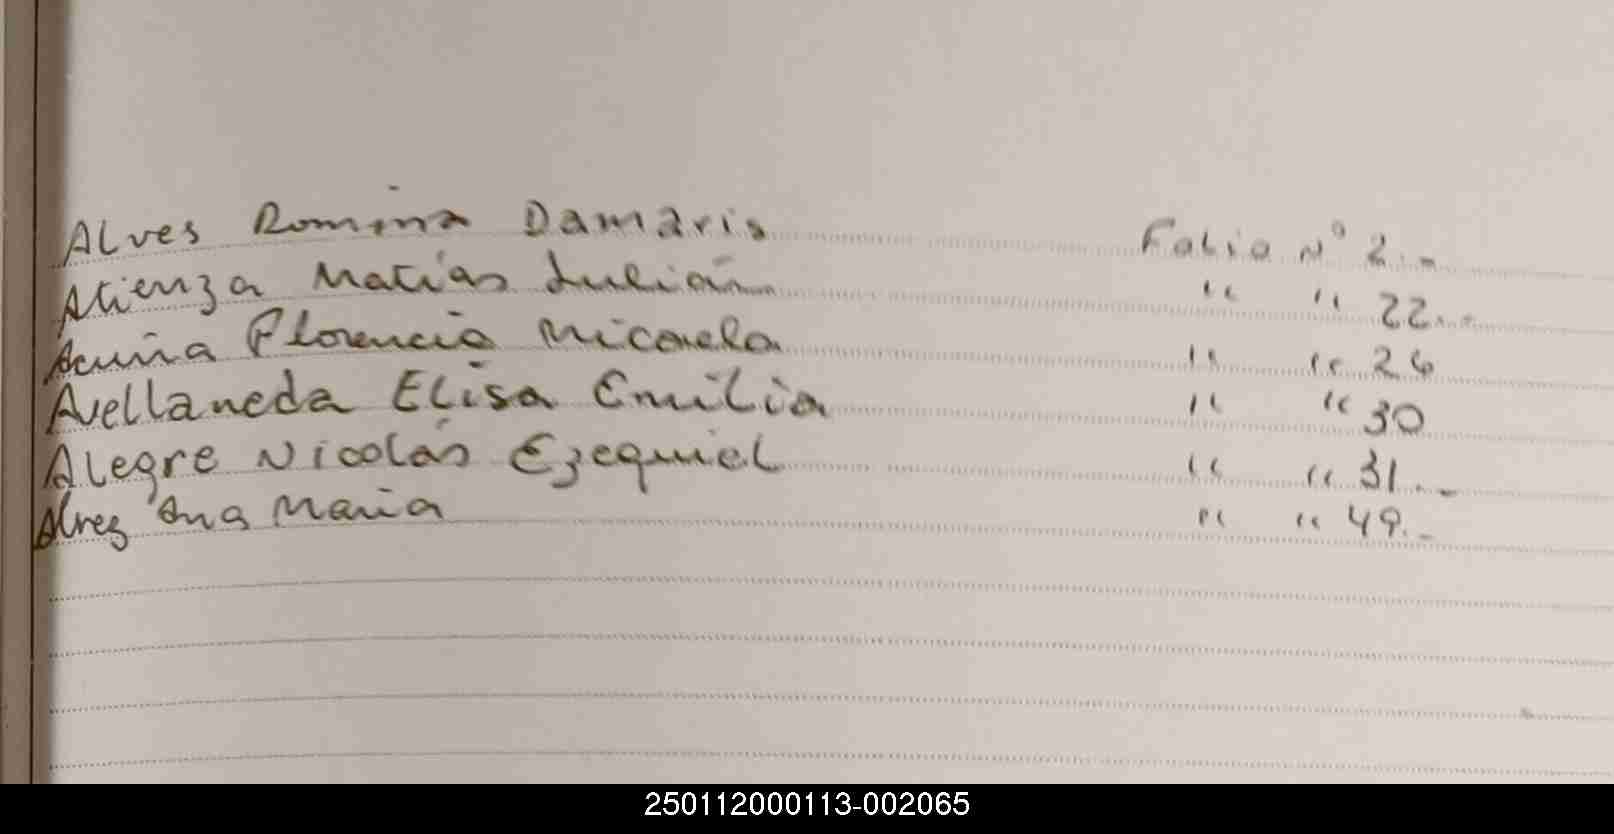 Alves Romina Damaris Folio Nº 2.-
Atienza Matías Julián " " 22.-
Acuña Florencia Micaela " " 26
Avellaneda Elisa Emilia " " 30
Alegre Nicolás Ezequiel " " 31.-
Alvez Ana Maria " " 49.-
250112000113-002065